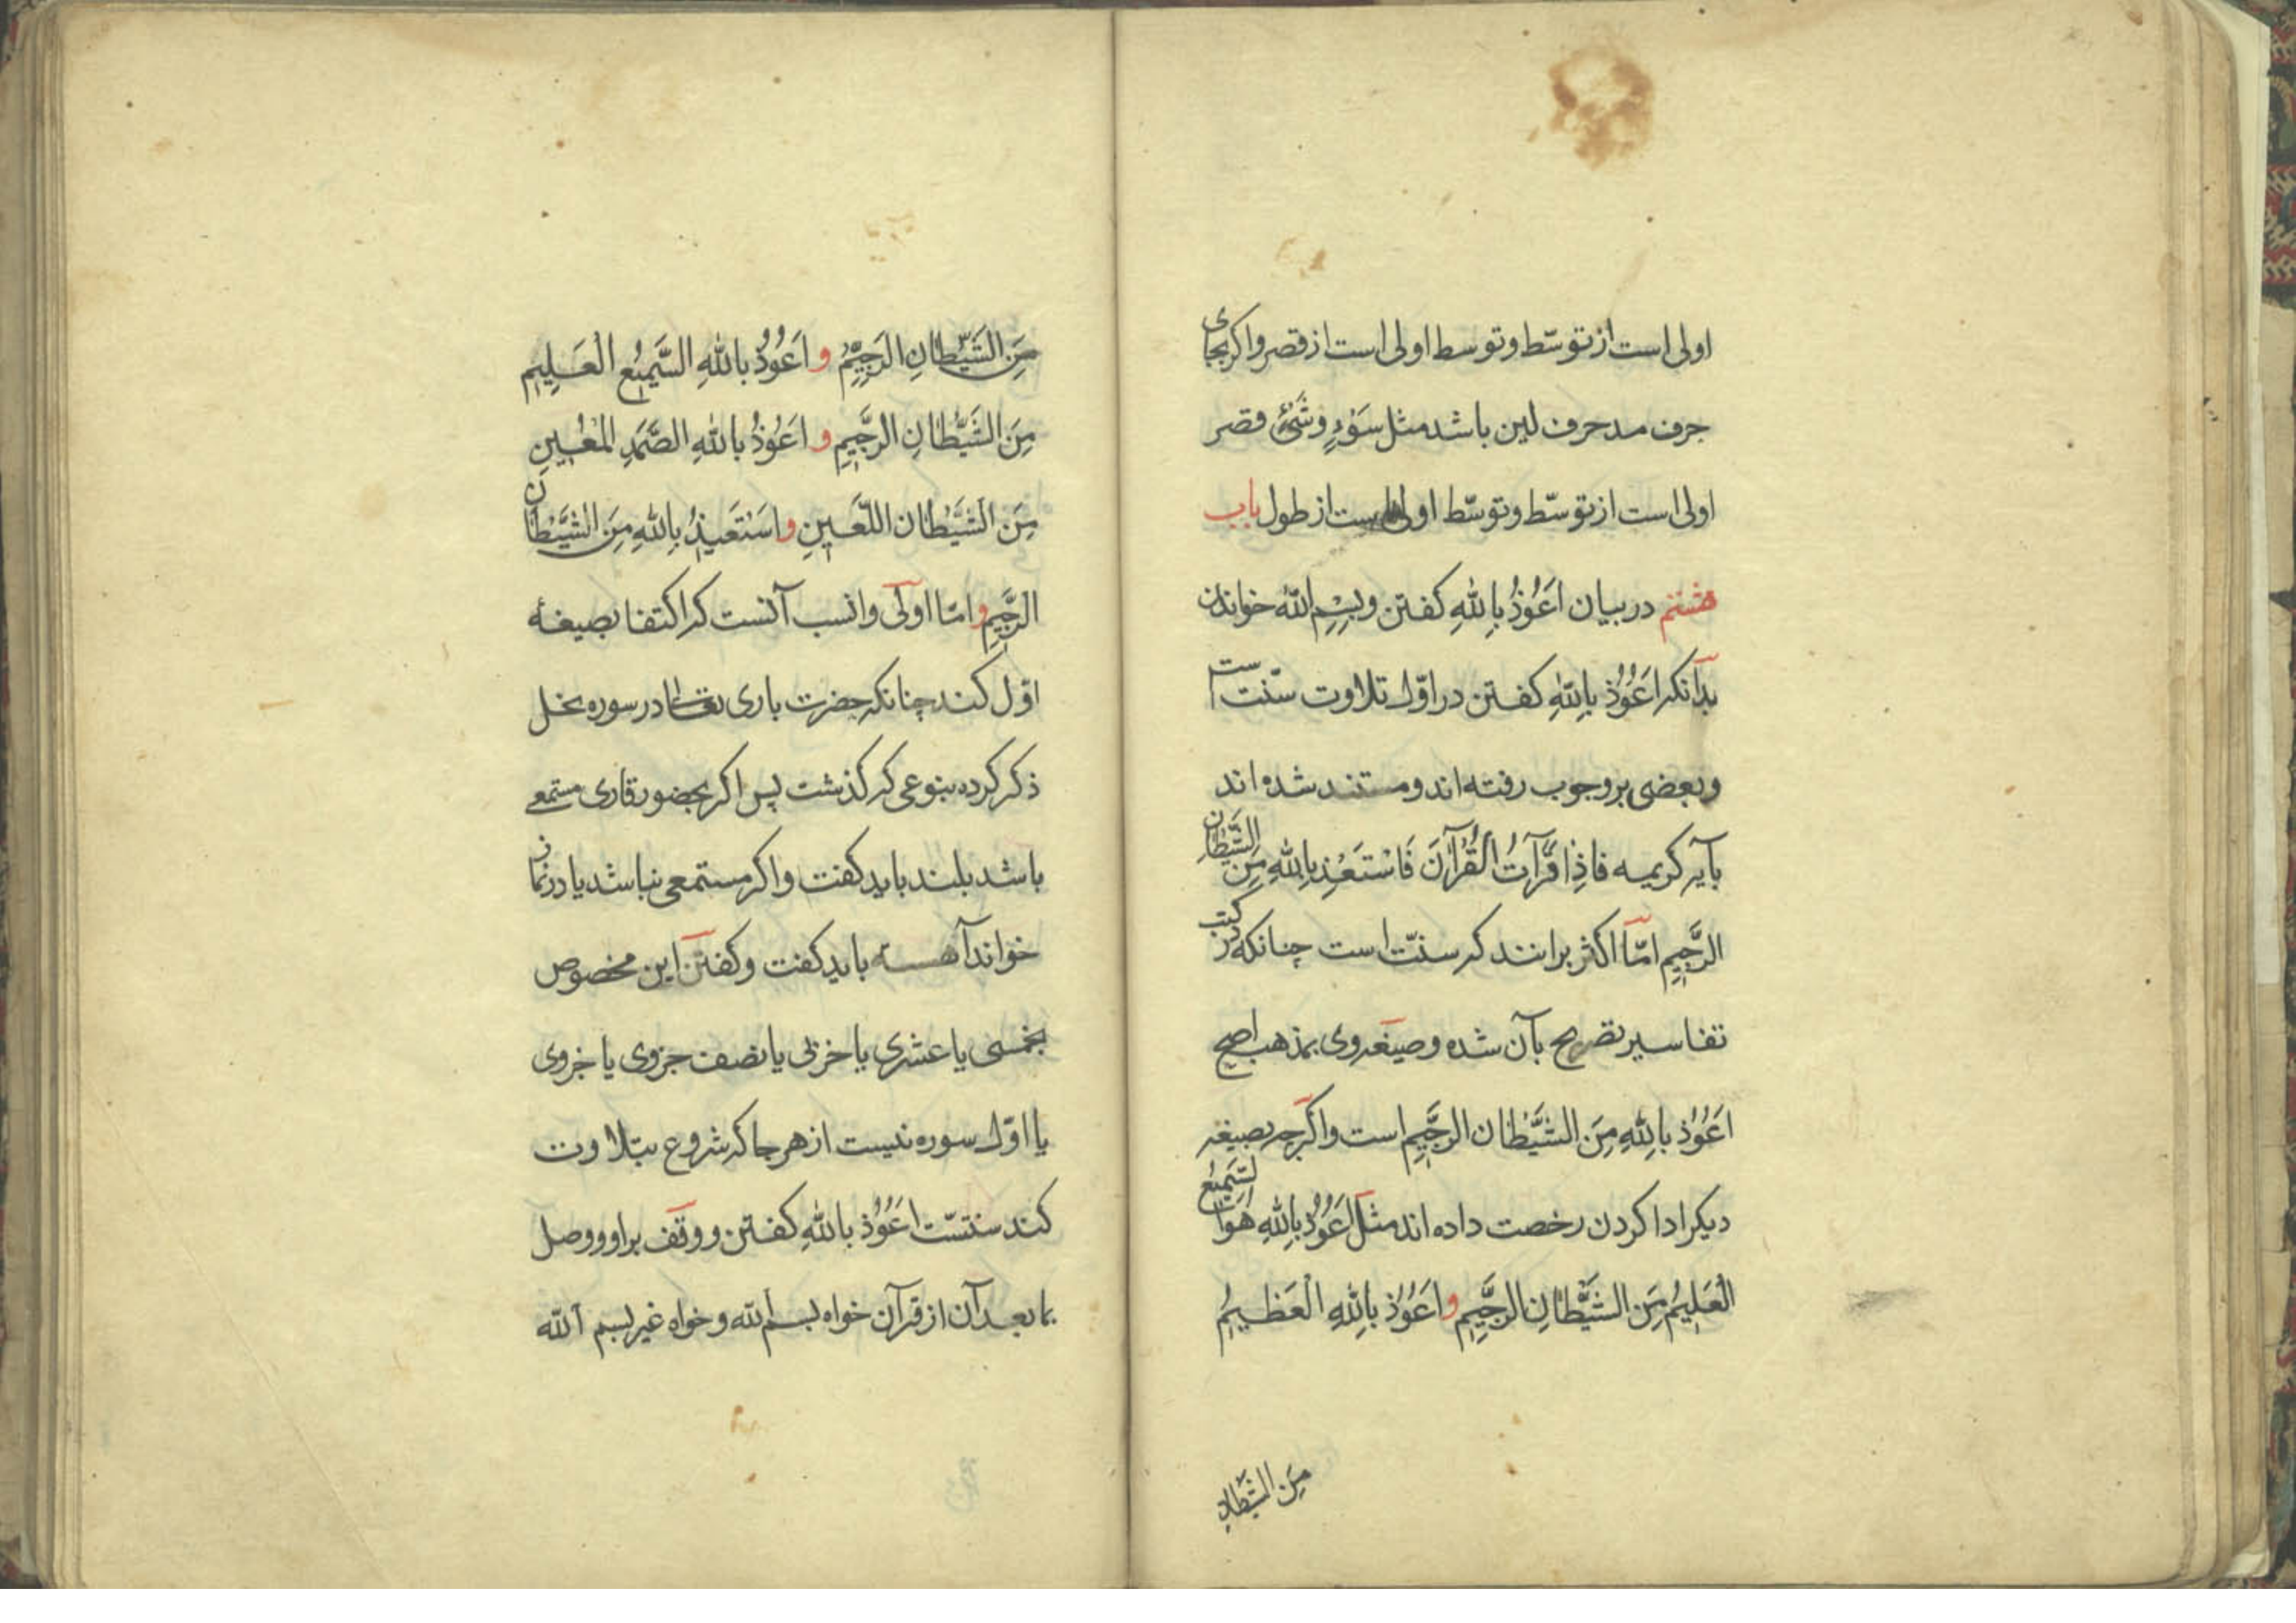 اولی است از توسّط و توسط اولی است از قصر و اکر بجای
حرف مد حرف لین باشد مثل سَوْءٍ و شَیْءٌ قصر
اولی است از توسّط و توسّط اولی است از طول باب
هشتم در بیان اَعُوْذُ بِاللّٰهِ کفتن و بِسْمِ اللّٰه خواندن
بدانکه اَعُوْذُ بِاللّٰهِ کفتن در اوّل تلاوت سنّت است
و بعضی بر وجوب رفته اند و مستند شده اند
بآیه کریمه فاذِا قَرَأتَ الْقُرْآنَ فَاسْتَعِذْ بِاللّٰهِ مِنَ الشَّیْطٰانِ
الرَّجِیْمِ امّا اکثر برانند که سنّت است چنانکه در کتب
تفاسیر تصریح بآن شده و صیغه وی بمذهب اصح
اَعُوْذُ بِاللّٰهِ مِنَ الشَّیْطٰان الرَّجِیْمِ است و اکرچه بصیغه
دیکر ادا کردن رخصت داده اند مثل اَعُوْذُ بِاللّٰهِ هُوَ السَّمِیْعُ
الْعَلِیْمُ مِنَ الشَّیْطٰانِ الرَّجِیْمِ و اَعُوْذُ بِاللّٰهِ الْعَظِیْمِ
مِنَ الشَّیْطٰانِ
مِنَ الشَّیْطٰانِ الرَجِیْمِ و اَعُوْذُ بِاللّٰهِ السَّمِیْعِ الْعَلِیْمِ
مِنَ الشَّیْطٰانِ الرَّجِیْمِ و اَعُوْذُ بِاللّٰهِ الصَّمَدِ الْمُعِیْنِ
مِنَ الشَّیْطٰان اللَّعِیْنِ و اَسْتَعِیْذُ بِاللّٰهِ مِنَ الشَّیْطٰانِ
الرَّجِیْمِ و امّا اولی و انسب آنست که اکتفا بصیغهٔ
اوّل کند چنانکه حضرت باری تعالی در سوره نحل
ذکر کرده بنوعی که کذشت پس اکر بحضور قاری مستمعی
باشد بلند باید کفت و اکر مستمعی نباشد یا در نماز
خواند آهسته باید کفت و کفتن این مخصوص
بخمسی یا عشری یا حزبی یا نصف جزوی یا جزوی
یا اوّل سوره نیست از هر جا که شروع بتلاوت
کند سنتست اَعُوْذُ بِاللّٰهِ کفتن و وقف بر او و وصل
بما بعد آن از قرآن خواه بسم اللّه و خواه غیر بسم اللّه